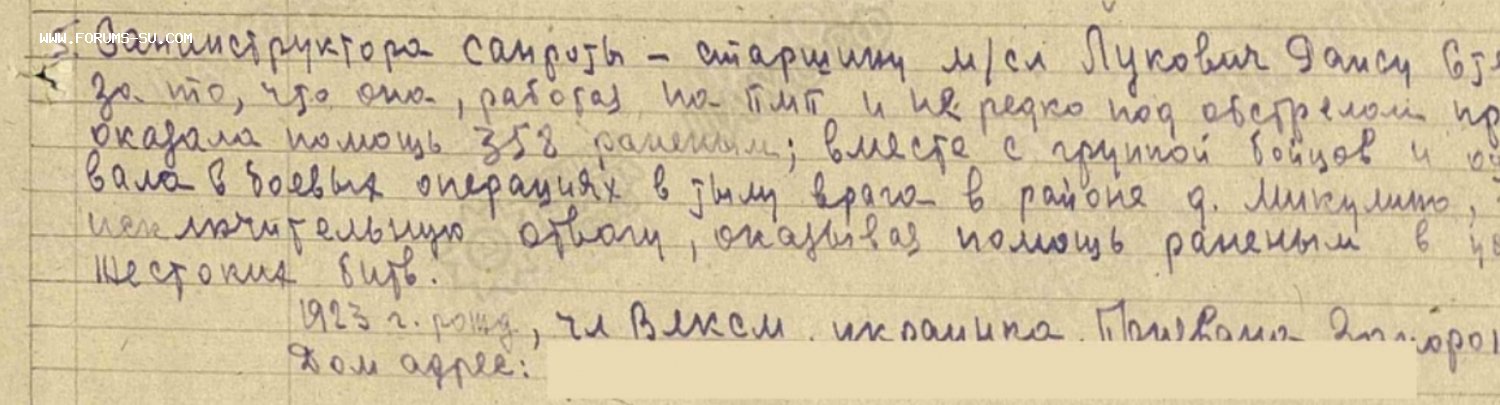 WWW.FORUMS-SU.COM
5. Санинструктора санроты - старшину м/сл Лукович Даису Сте
за то, что она, работая на ПМП и не редко под обстрелом пр
оказала помощь 358 раненым; вместе с группой бойцов и
вала в боевых операциях в тылу врага в районе д. Микулино,
исключительную отвагу, оказывая помощь раненым в
жестоких битв.
1923 г. рожд, чл ВЛКСМ. украинка. Призвана
Дом адрес: